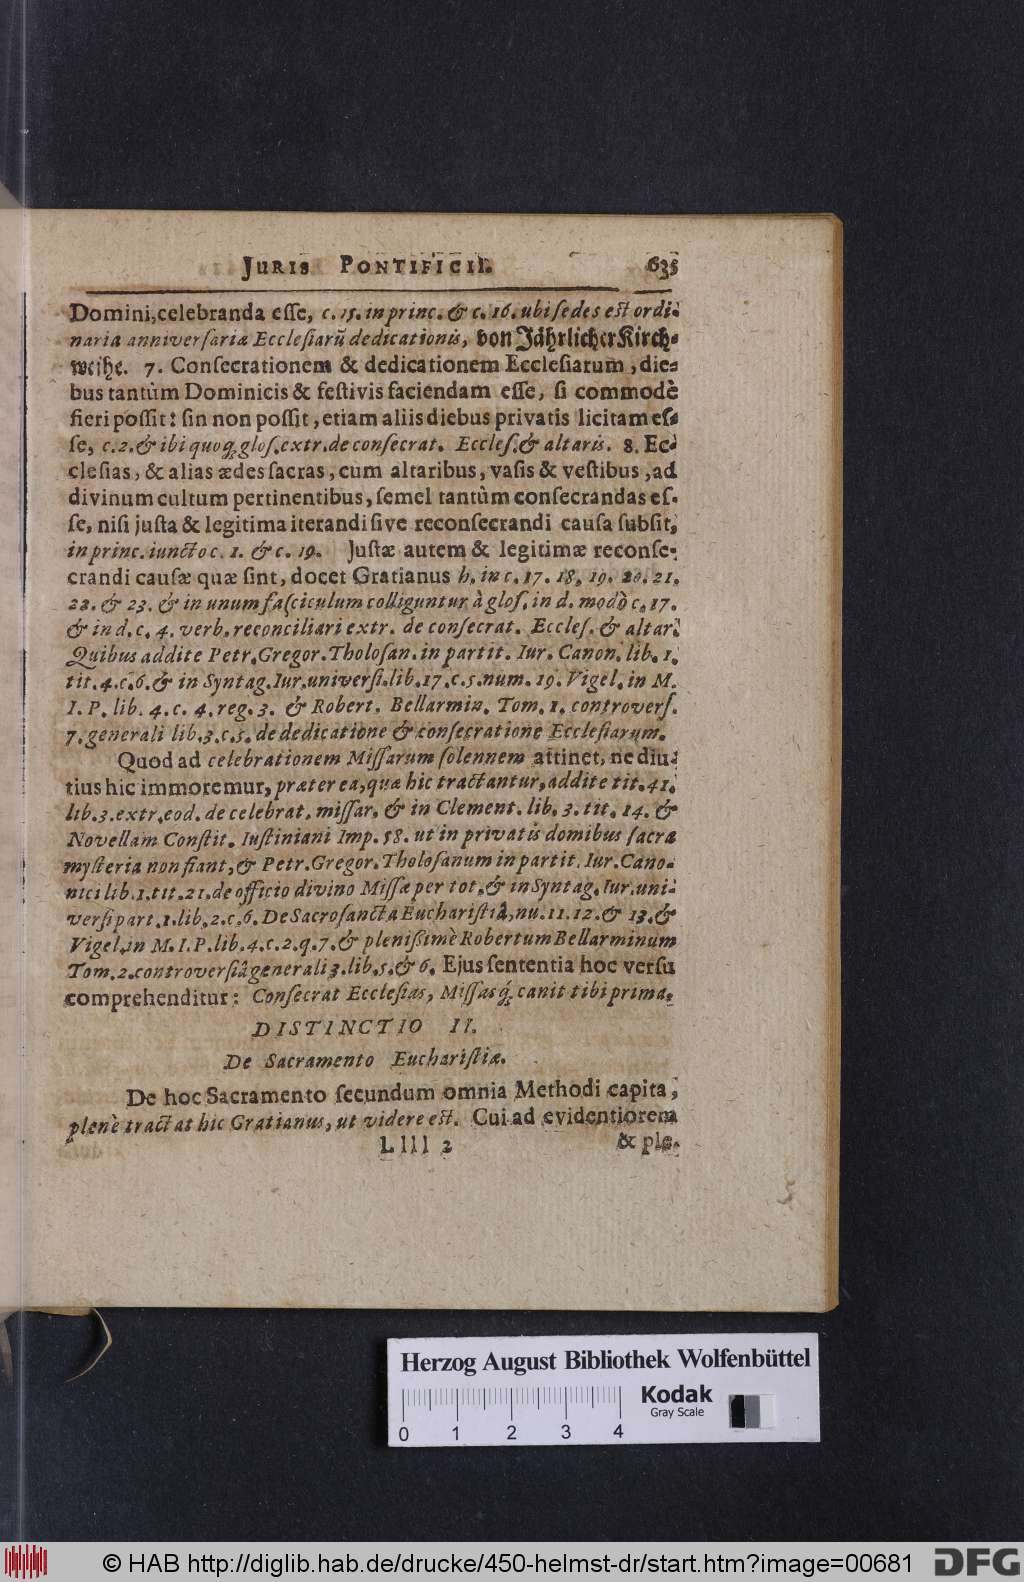 JURIS PONTIFICII. 635
Domini, celebranda eſſe, c. 15. in princ. & c. 16. ubi ſedes eſt ordi-
naria anniverſaria Eccleſiarū dedicationis, von Jährlicher Kirch-
weihe. 7. Conſecrationem & dedicationem Eccleſiarum, die-
bus tantùm Dominicis & feſtivis faciendam eſſe, ſi commodè
fieri poſſit: ſin non poſſit, etiam aliis diebus privatis licitam eſ-
ſe, c. 2. & ibi quoq; gloſ. extr. de conſecrat. Eccleſ. & altaris. 8. Ec-
cleſias, & alias ædes ſacras, cum altaribus, vaſis & veſtibus, ad
divinum cultum pertinentibus, ſemel tantùm conſecrandas eſ-
ſe, niſi juſta & legitima iterandi ſive reconſecrandi cauſa ſubſit,
in princ. iuncto c. 1. & c. 19. Juſtæ autem & legitimæ reconſe-
crandi cauſæ quæ ſint, docet Gratianus h. in c. 17. 18. 19. 20. 21.
22. & 23. & in unum faſciculum colliguntur à gloſ. in d. modò c. 17.
& in d. c. 4. verb. reconciliari extr. de conſecrat. Eccleſ. & altar.
Quibus addite Petr. Gregor. Tholoſan. in partit. Iur. Canon. lib. 1.
tit. 4. c. 6. & in Syntag. Iur. univerſi. lib. 17. c. 5. num. 19. Vigel. in M.
I. P. lib. 4. c. 4. reg. 3. & Robert. Bellarmin. Tom. 1. controverſ.
7. generali lib. 3. c. 5. de dedicatione & conſecratione Eccleſiarum.
Quod ad celebrationem Miſſarum ſolennem attinet, ne diu-
tius hic immoremur, præter ea, quæ hic tractantur, addite tit. 41.
lib. 3. extr. eod. de celebrat. miſſar. & in Clement. lib. 3. tit. 14. &
Novellam Conſtit. Iuſtiniani Imp. 58. ut in privatis domibus ſacra
myſteria non fiant, & Petr. Gregor. Tholoſanum in partit. Iur. Cano-
nici lib. 1. tit. 21. de officio divino Miſſæ per tot. & in Syntag. Iur. uni-
verſi part. 1. lib. 2. c. 6. De Sacroſancta Euchariſtiâ, nu. 11. 12. & 13. &
Vigel. in M. I. P. lib. 4. c. 2. q. 7. & pleniſſimè Robertum Bellarminum
Tom. 2. controverſiâ generali 3. lib. 5. & 6. Ejus ſententia hoc verſu
comprehenditur: Conſecrat Eccleſias, Miſſasq́; canit tibi prima.
DISTINCTIO II.
De Sacramento Euchariſtiæ.
De hoc Sacramento ſecundum omnia Methodi capita,
plenè tractat hic Gratianus, ut videre eſt. Cui ad evidentiorem
Llll 2 & ple-
Herzog August Bibliothek Wolfenbüttel
Kodak
Gray Scale
0 1 2 3 4
© HAB http://diglib.hab.de/drucke/450-helmst-dr/start.htm?image=00681
DFG